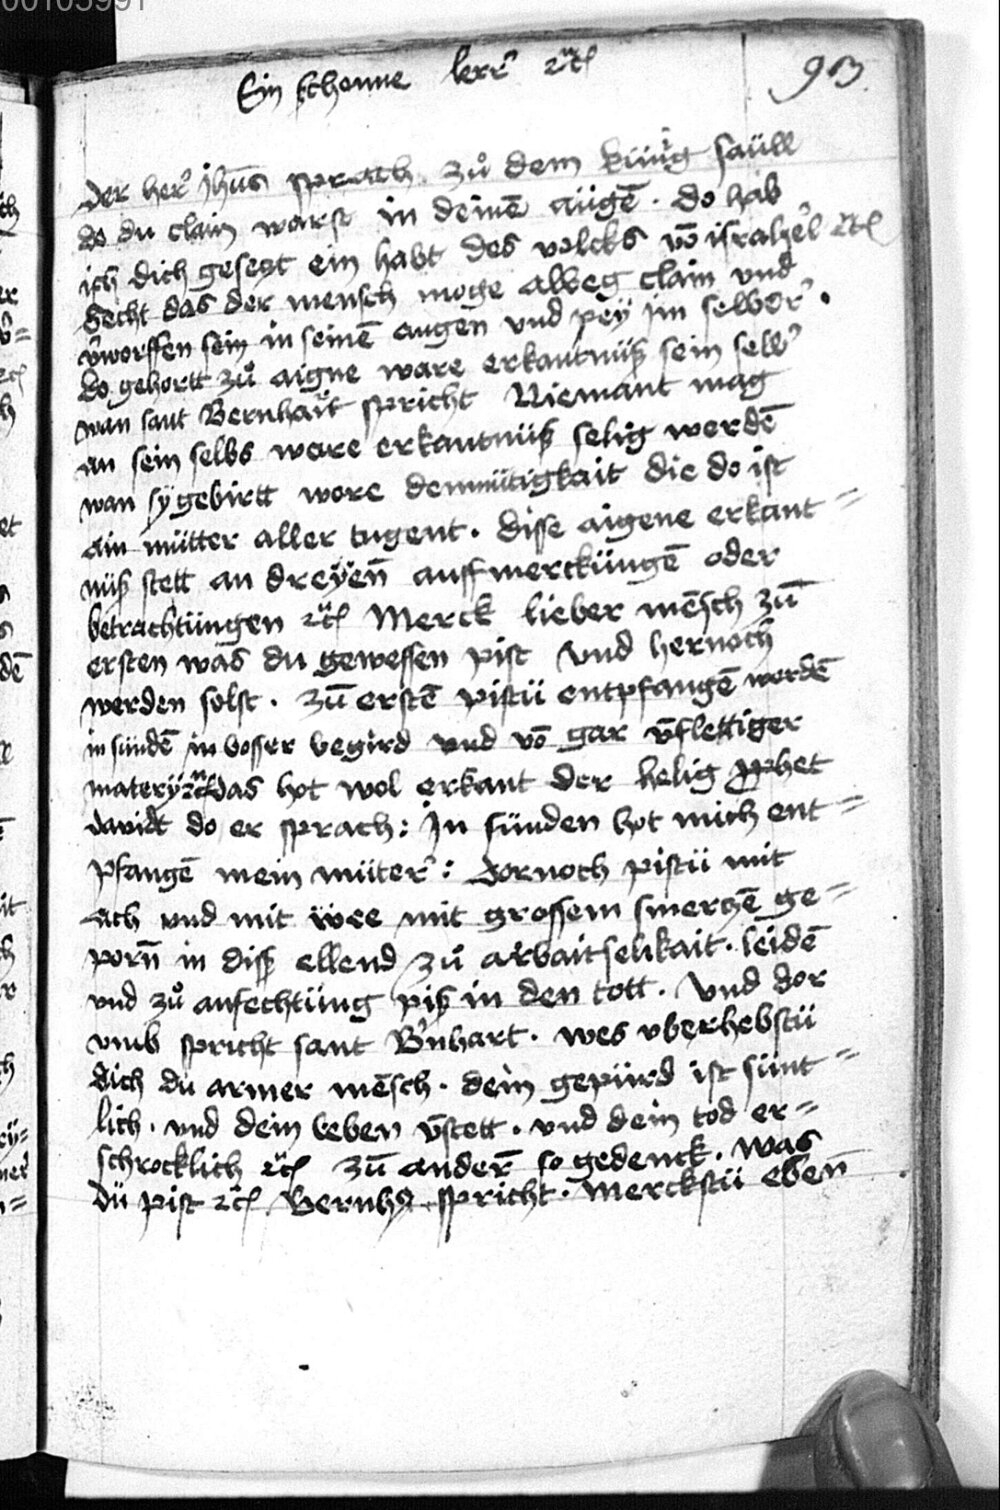 00105991
Ein schonne lerr ꝛc̄ 913
Der her᷑ jhūs sprach zů dem küng saüll
do du clain warst in deinē aügē. do hab
ich dich gesegt ein habt des volcks vō israhel ꝛc̄
Secht das der mensch moge alweg clain vnd
v̄worffen sein in seinē augen vnd pey im selber᷑.
do gehortt zů aigne ware erkantnüß sein selb᷑
wan sant Bernhart spricht Niemant mag
an sein selbs ware erkantnüß selig werdē
wan sÿ gebirtt wore demütigkait die do ist
ain mütter aller tugent. disse aigene erkant=
nüß stett an dreÿen̄ auffmerckungē oder
betrachtüngen ꝛc̄ Merck lieber mēsch zū
ersten was du gewessen pist vnd hernoch
werden solst. zū erstē pistü entpfangē wordē
in sündē in bosser begird vnd vō gar v̄flettiger
materÿ ꝛc̄ das hot wol erkant der helig ꝓphet
davidt do er sprach: In sünden hot mich ent=
pfangē mein müter᷑: dornoch pistü mit
ach vnd mit wee mit grossem smerczē ge=
porn̄ in diß ellend zů arbaitselikait. leidē
vnd zů anfechtüng piß in den tott. vnd dor
vmb spricht sant B᷑nhart. wes vberhebstü
dich du armer mēsch. dein gepürd ist sünt=
lich. vnd dein leben v̄stett. vnd dein tod er=
schrocklich ꝛc̄ zū ander̄ so gedenck. was
dü pist ꝛc̄. Bernhꝰ spricht. merckstü eben̄